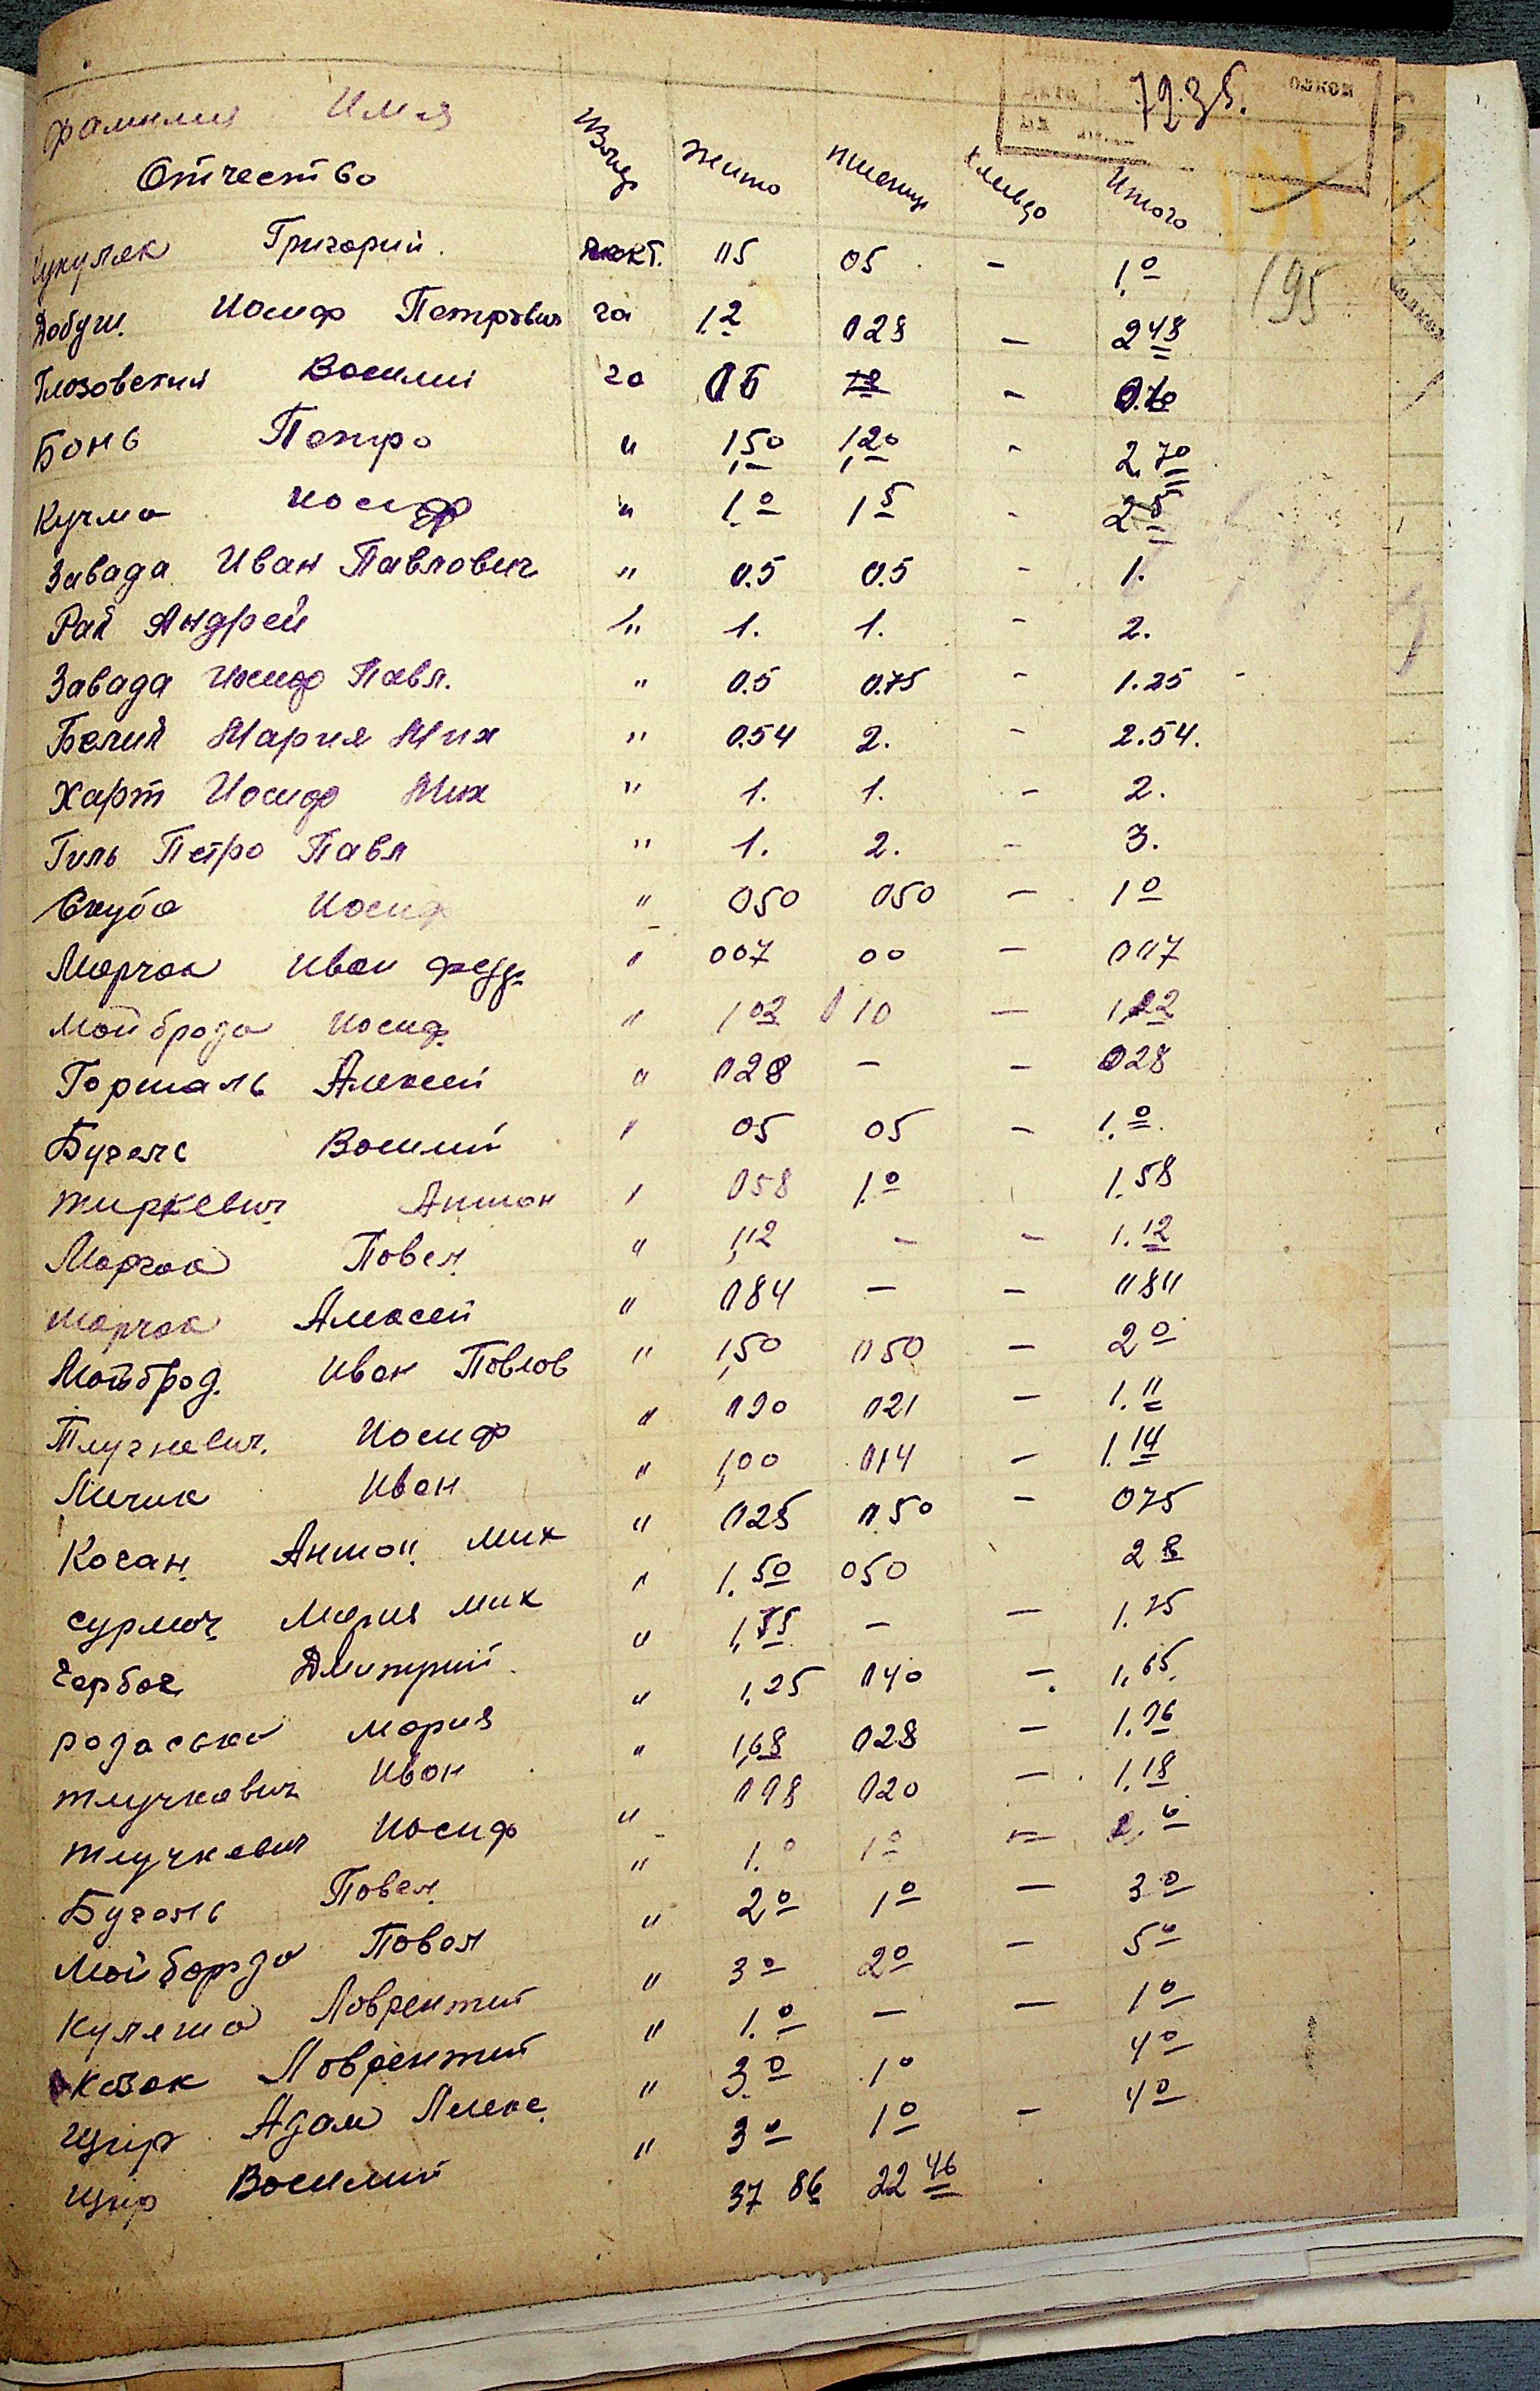 7235.
195
Фамилия Имя Жито Пшениц Итого
Отчество
Григорий. 05 05 - 1.0
Добуш. Иосиф Петрович га 1.2 028 - 2 48
Глозовский Василий га - 0.70
Бонь Петро " 1,50 1,20 - 2.70
Кучма Иосиф " 1.0 1 5 - 2 5
Завада Иван Павлович " 0.5 0.5 - 1.
Рай Андрей " 1. 1. - 2.
Завада Иосиф Павл. " 0.5 0.75 - 1.25
Белий Мария Мих " 0.54 2. - 2.54.
Харт Иосиф Мих " 1. 1. - 2.
Гиль Петро Павл " 1. 2. - 3.
Скуба Иосиф " 050 050 - 1 0
Марчак Иван Фед. " 007 00 - 007
Мойброда Иосиф. " 1 02 0 10 - 1,12
Горталь Алексей " 028 - - 028
Бугель Василий " 05 05 - 1.0
Жиркевич Антон " 058 1.0 1.58
Марчак Павел " 1,12 - - 1.12
Марчак Алексей " 084 - - 084
Мойброд. Иван Павлов " 1,50 050 - 2 0
Тлучкевич. Иосиф " 090 021 - 1.11
Мичик Иван " 1,00 014 - 1.14
Коган. Антон. Мих " 025 050 - 075
Сурмач Мария Мих " 1.50 050 2 0
Дмитрий " - - 1.75
Мария " 1,25 040 - 1,65
Тлучкевич Иван " 1,68 028 - 1.96
Тлучкевич Иосиф " 098 020 - 1.18
Бугель Павел " 1.0 1 0 - 2.0
Мойборода Павел " 2 0 1 0 - 3 0
Кулеша Лаврентий " 3 0 2 0 - 5 0
Козак Лаврентий " 1.0 - - 1 0
Щир Адам Алекс. " 3.0 1 0 4 0
Щир Василий " 3 0 1 0 - 4 0
37 86 22 46